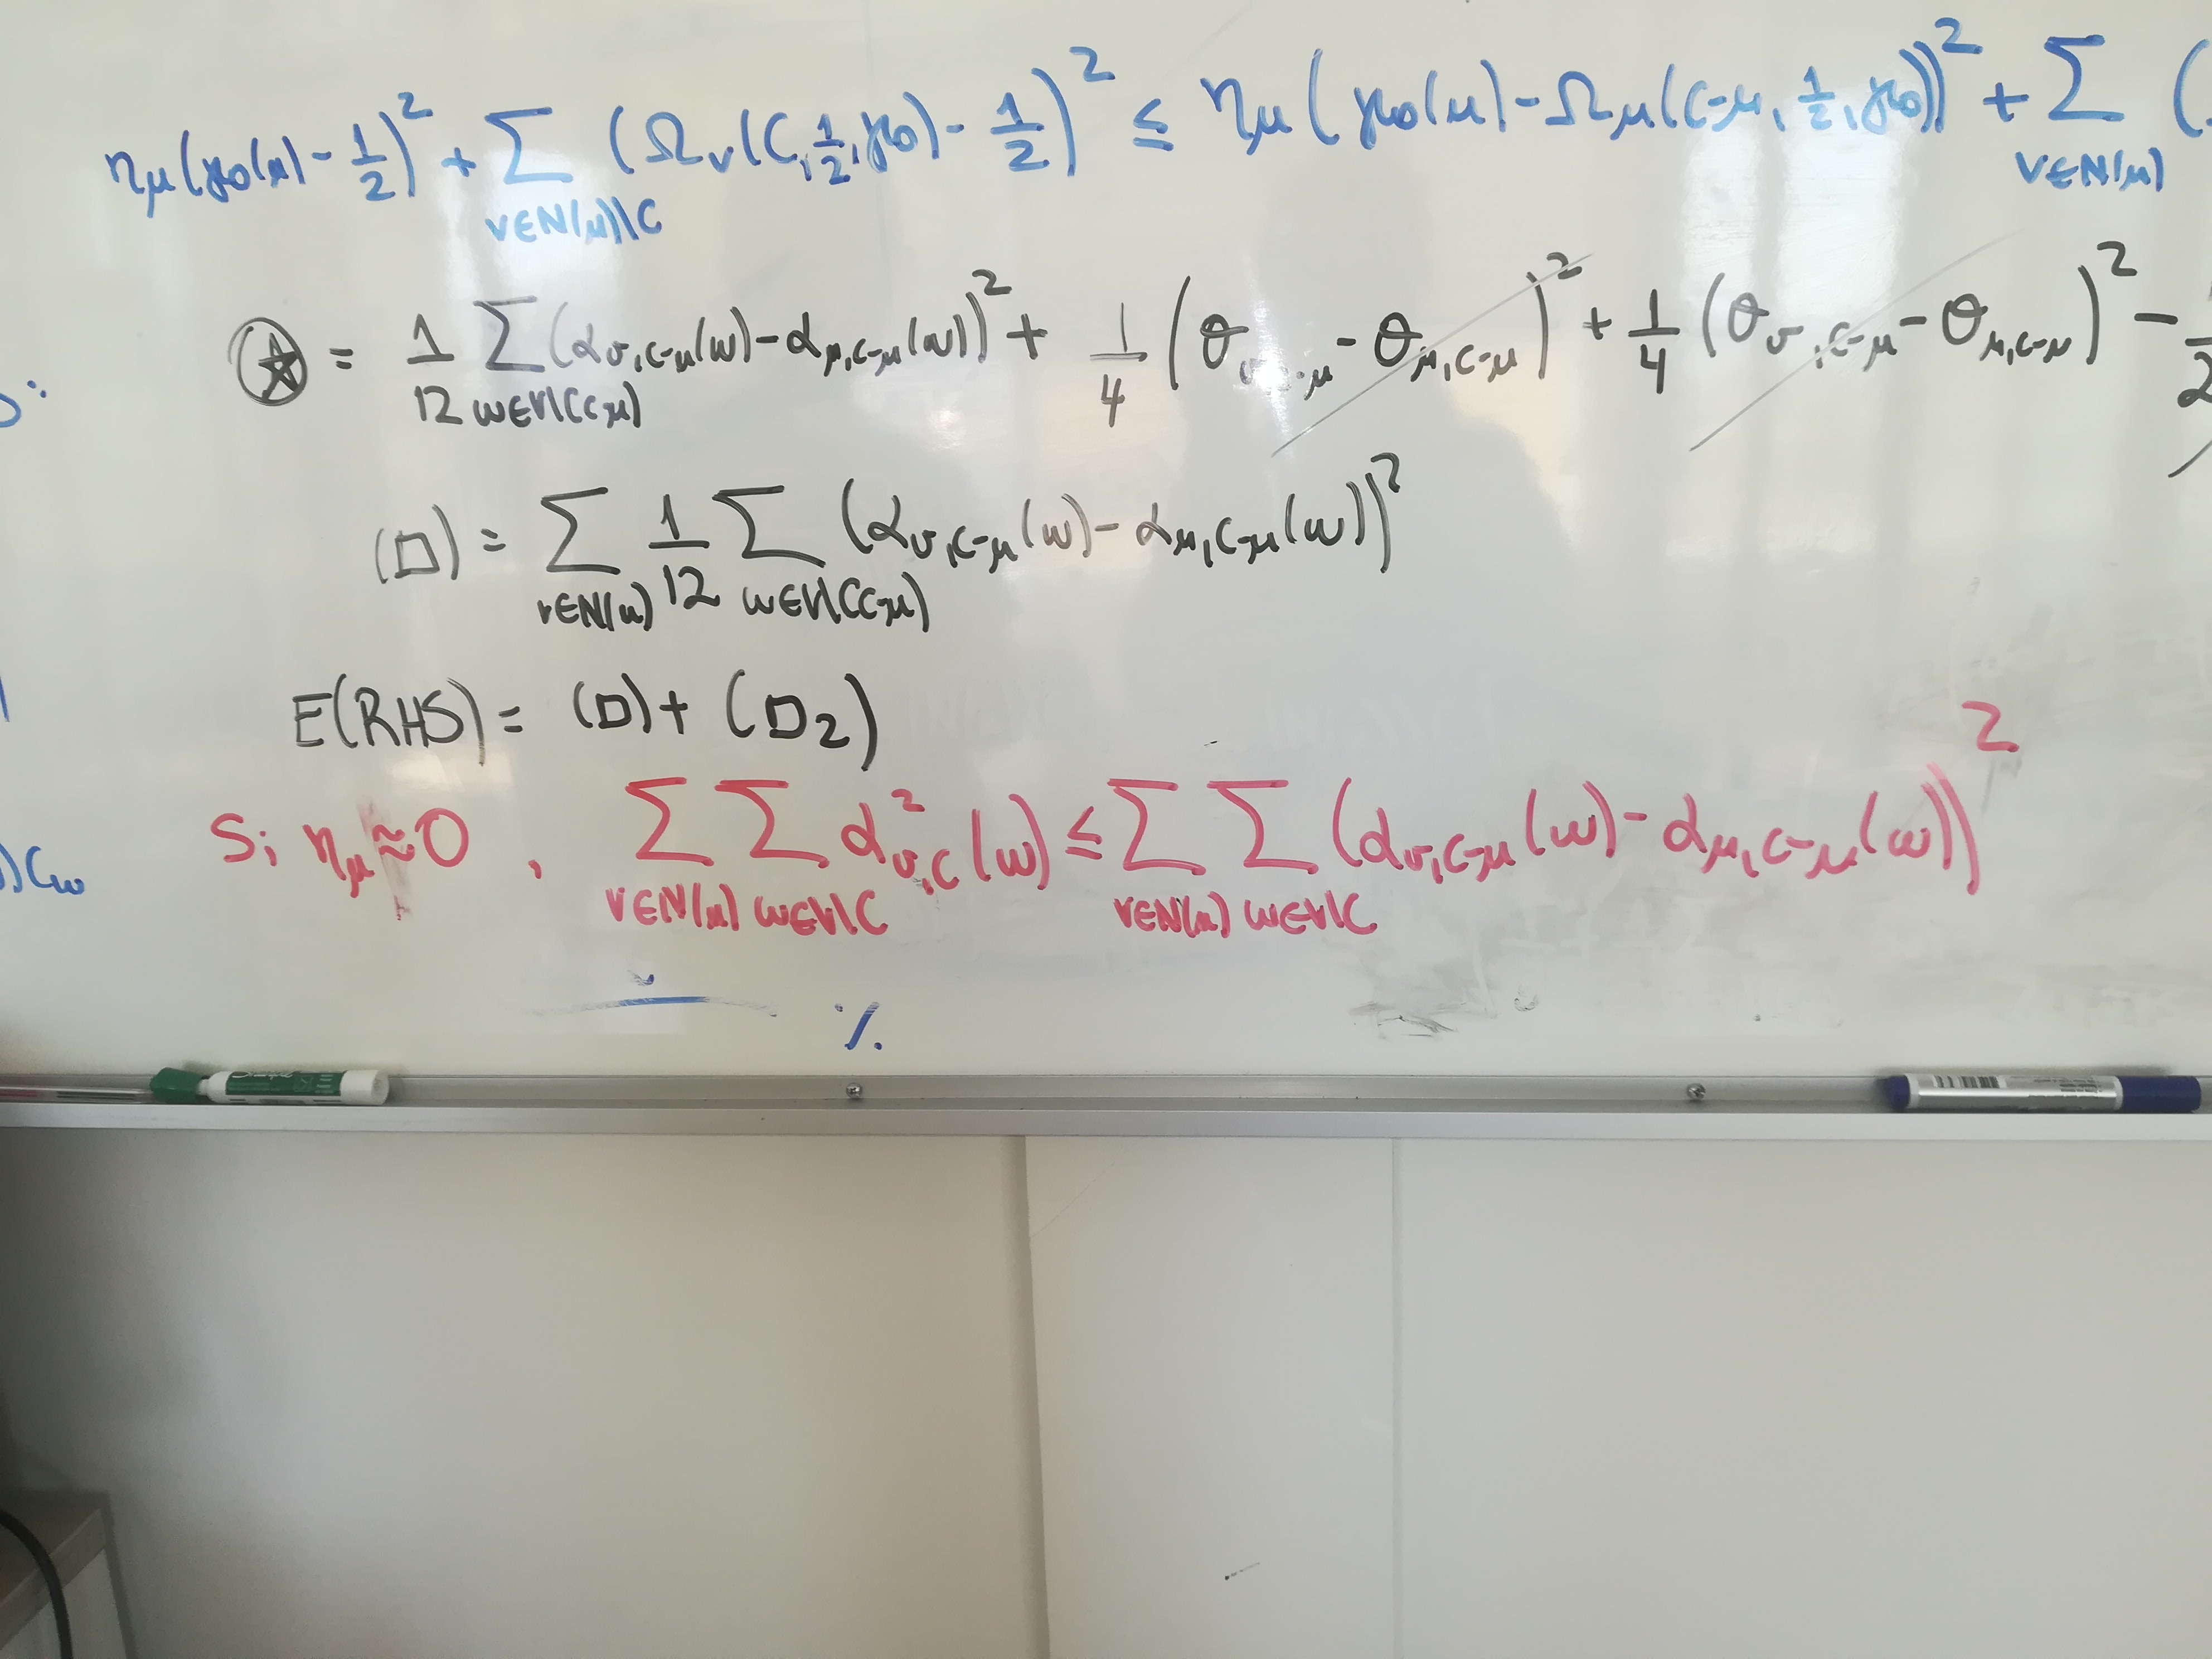 η_μ(γ_0(μ) - 1/2)² + Σ_{v∈N(μ)\C} (Ω_v(C, 1/2, γ_0) - 1/2)² ≤ η_μ(γ_0(μ) - Ω_μ(C-μ, 1/2, γ_0))² + Σ_{v∈N(μ)} (
⍟ = 1/12 Σ_{w∈V\(C-μ)} (α_{v,C-μ}(w) - α_{μ,C-μ}(w))² + 1/4 (θ_{v,C-μ} - θ_{μ,C-μ})² + 1/4 (θ_{v,C-μ} - θ_{μ,C-μ})² -
(□) = Σ_{v∈N(u)} 1/12 Σ_{w∈V\(C-μ)} (α_{v,C-μ}(w) - α_{μ,C-μ}(w))²
E(RHS) = (□) + (□2)
Si η_μ ≈ 0, Σ_{v∈N(μ)} Σ_{w∈V\C} α²_{v,C}(w) ≤ Σ_{v∈N(μ)} Σ_{w∈V\C} (α_{v,C-μ}(w) - α_{μ,C-μ}(w))²